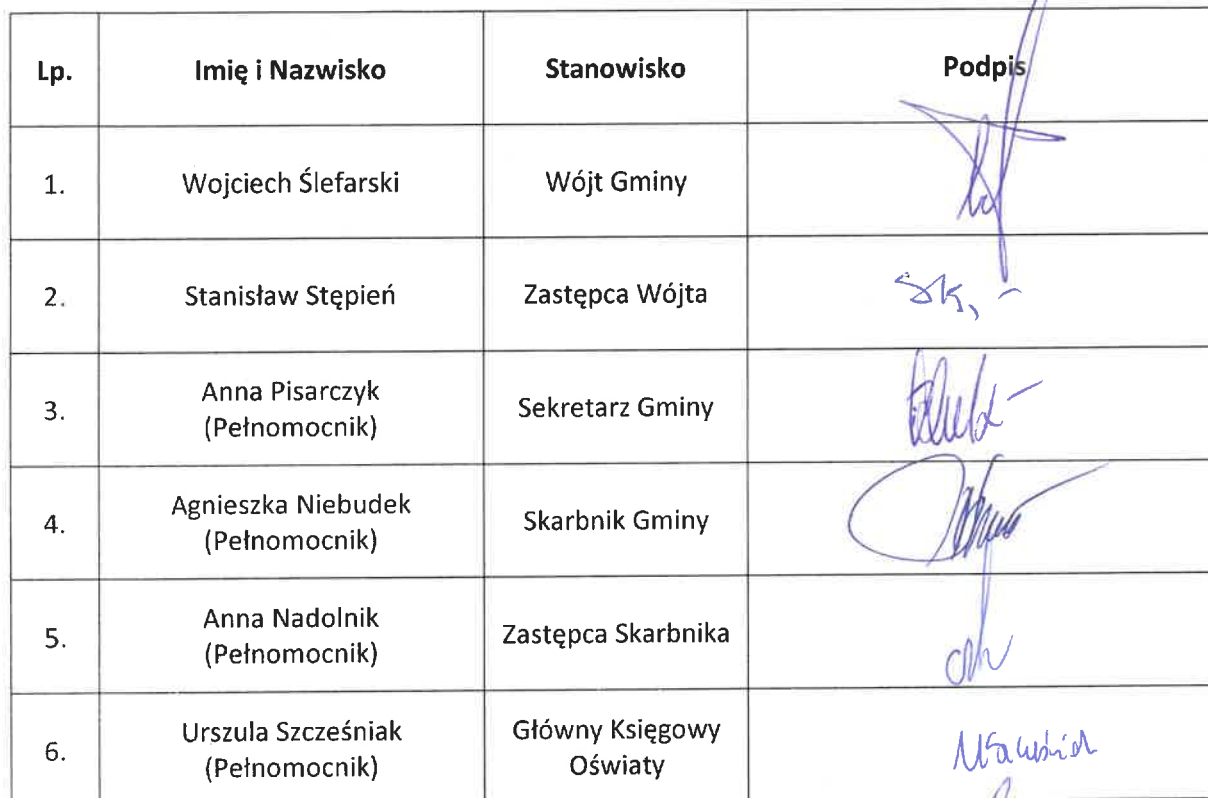 Lp. Imię i Nazwisko Stanowisko Podpis
1. Wojciech Ślefarski Wójt Gminy
2. Stanisław Stępień Zastępca Wójta
3. Anna Pisarczyk
(Pełnomocnik) Sekretarz Gminy
4. Agnieszka Niebudek
(Pełnomocnik) Skarbnik Gminy
5. Anna Nadolnik
(Pełnomocnik) Zastępca Skarbnika
6. Urszula Szcześniak
(Pełnomocnik) Główny Księgowy
Oświaty